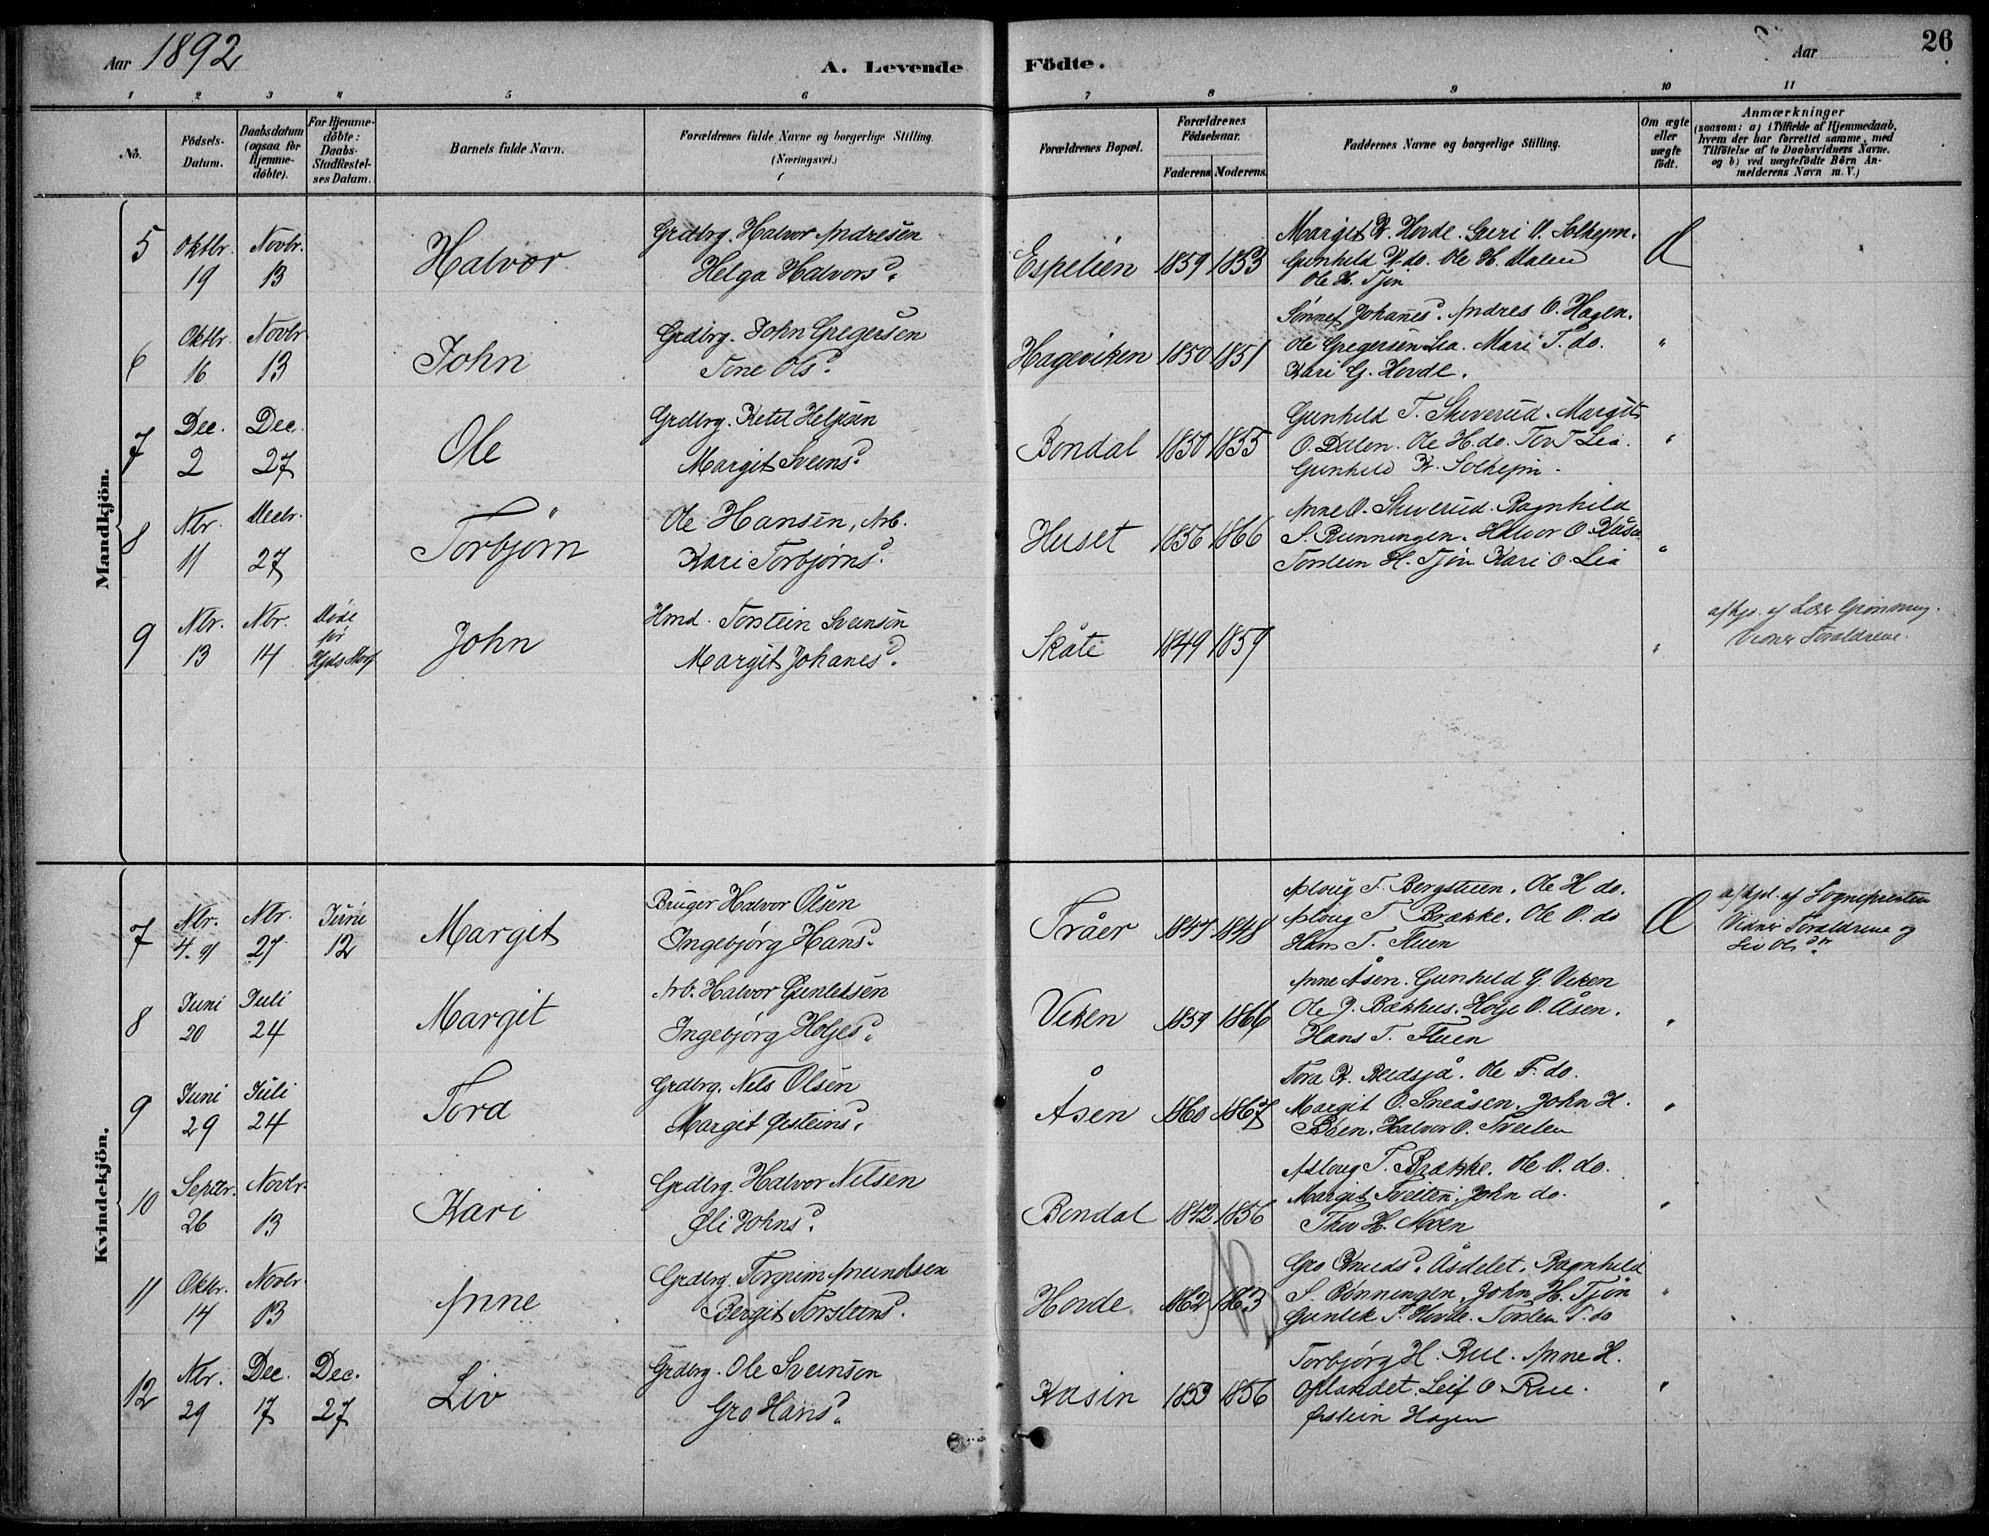 Aar 1892
A. Levende Födte.
Aar
26
1 2 3 4 5 6 7 8 9 10 11
No.
Födsels-Datum.
Daabsdatum (ogsaa for Hjemme-döbte).
For Hjemme-döbte: Daabs-Stadfæstel-ses Datum.
Barnets fulde Navn.
Forældrenes fulde Navne og borgerlige Stilling. (Næringsvei.)
Forældrenes Bopæl.
Forældrenes Födselsaar.
Faderens Moderens
Faddernes Navne og borgerlige Stilling.
Om ægte eller uægte födt.
Anmærkninger
(saasom: a) i Tilfælde af Hjemmedaab,
hvem der har forrettet samme, med
Tilföielse af to Daabsvidners Navne.
og b) ved uægtefödte Börn An-
melderens Navn m. V.)
Mandkjön.
5 Oktbr. 19 Novbr. 13 Halvor
Grdbrg. Halvor Andresen
Helga Halvorsd.
Espelien 1859 1853
Margit K. Hovde. Guri O. Solhejm.
Gunhild K. do. Ole H. Dalen
Ole H. Tjön
Æ
6 Oktbr 16 Novbr 13 John
Grdbrg. John Gregersen
Tone Olsd.
Hageviken 1850 1851
Sønnef Johanesd. Andres O. Hagen.
Ole Gregersen Lia. Mari T. do.
Kari G. Hovde.
"
7 Dec. 2 Dec. 27 Ole
Grdbrg. Ketil Helgesen
Margit Sveinsd.
Bondal 1850 1855
Gunhild T. Skeverud. Margit
O. Dalen. Ole H. do. Tov T Lia.
Gunhild K. Solhejm.
"
8 Nbr. 11 Decbr. 27 Torbjørn
Ole Hansen, Arb.
Kari Torbjørnsd.
Huset 1856 1866
Anne O. Skeverud. Ragnhild
S. Rønningen. Halvor O. Kåsa
Torstein H. Tjön Kari O. Lia
"
9 Nbr. 13 Nbr. 14 Døde før John
Hmd. Torstein Sveinsön
Margit Johanesd.
Skåte 1849 1859
"
Vidner Forældrene.
Kvindekjön.
7 Nbr. 4. 91 Nbr. 27 Juni 12 Margit
Bruger Halvor Olsen
Ingebjørg Hansd.
Tråer 1847 1848
Asloug T. Bergstuen. Ole H do.
Asloug T. Brække. Ole O. do
Hans T. Fluen
Æ
af Sognepresten
Vidner Forældrene og
Liv Olsdtr.
8 Juni 20 Juli 24 Margit
Arb. Halvor Gunleksen
Ingebjørg Holjesd.
Viken 1859 1866
Anne Åsen. Gunhild G. Viken
Ole J. Bækhus. Holje O. Åsen.
Hans T. Fluen
"
9 Juni 29 Juli 24 Tora
Grdbrg. Nels Olsen
Margit Østeinsd.
Åsen 1860 1867
Tora K. Bredsjå. Ole F. do.
Margit O. Sneåsen. John H.
Bøen. Halvor O. Tveiten
"
10 Septbr. 26 Novbr. 13 Kari
Grdbrg. Halvor Nilsen
Øli Johnsd.
Bondal 1842 1856
Asloug T. Brække. Ole O. do.
Margit Tveiten. John do.
Thov H. Moen
"
11 Oktbr. 14 Novbr 13 Anne
Grdbrg. Torgrim Amundsen
Bergit Torsteinsd.
Hovde 1862 1863
Gro Knudsd. Åsdelet. Ragnhild
S. Rønningen. John H. Tjön
Gunlek T. Hovde. Torstein T. do
"
12 Nbr. 29 Dec. 17 Dec. 27 Liv
Grdbrg. Ole Sveinson
Gro Hansd.
Kasin 1853 1856
Torbjørg H. Rue. Anne H.
Øilandet. Leif O. Rue.
Østein Hagen
"